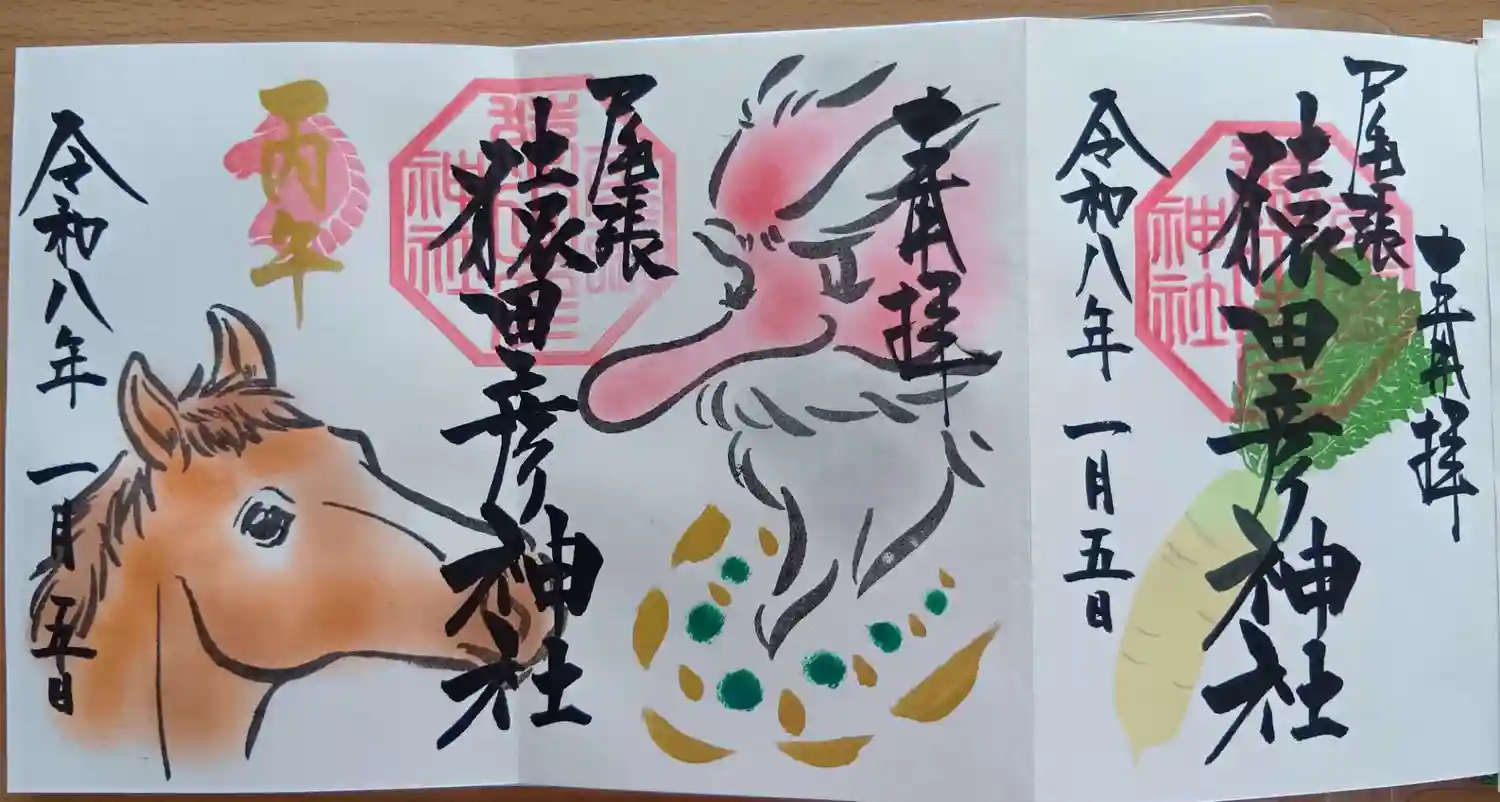 奉拝
尾張
猿田彦神社
令和八年 一月五日
奉拝
尾張
猿田彦神社
丙午
令和八年 一月五日
神社
神社